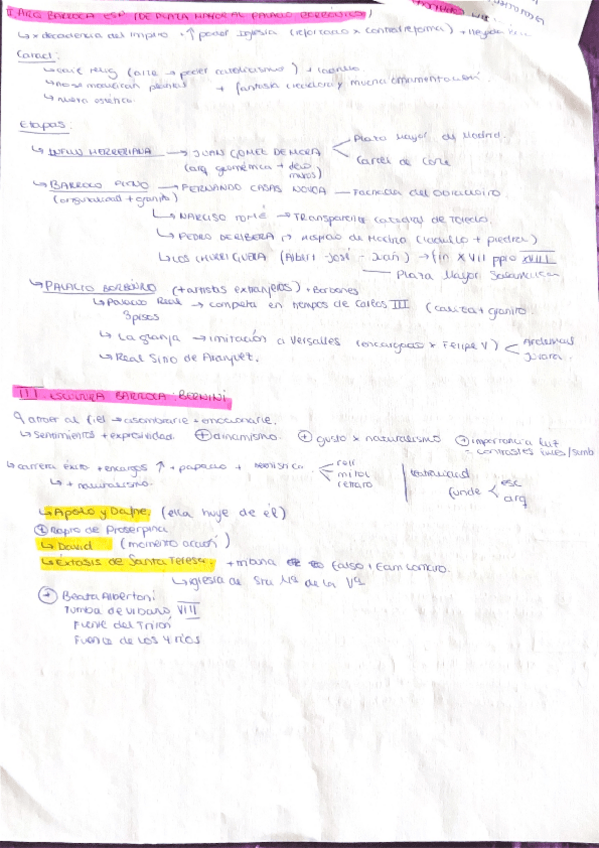 II ARQ BARROCA ESP (DE PLAZA MAYOR AL PALACIO BORBÓNICO)
↳ x decadencia del imperio + ↑ poder Iglesia (reforzado x contrarreforma) + llegada
Caract:
↳ relig (arte → poder catolicismo) + ladrillo
↳ no se modifican plantas + fantasía creadora y mucha ornamentación.
↳ nueva estética.
Etapas:
↳ INFLU HERRERIANA → JUAN GÓMEZ DE MORA
Plaza Mayor de Madrid.
Cárcel de Corte
(arq geométrica + deco muros)
↳ BARROCO PLENO → FERNANDO CASAS NOVOA — Fachada del Obradoiro.
(originalidad + granito)
↳ NARCISO TOMÉ → Transparente Catedral de Toledo.
↳ PEDRO DE RIBERA → Hospicio de Madrid (ladrillo + piedra)
↳ LOS CHURRIGUERA (Alberto - José - Joaq) → fin XVII ppio XVIII
— Plaza Mayor Salamanca
↳ PALACIO BORBÓNICO (+ artistas extranjeros) + Borbones
↳ Palacio Real → completa en tiempos de Carlos III (caliza + granito
3 pisos
↳ La granja → imitación a Versalles (encargado x Felipe V)
Ardemans
Juvara.
↳ Real Sitio de Aranjuez.
III ESCULTURA BARROCA: BERNINI
atraer al fiel → asombrarle + emocionarle.
↳ sentimientos + expresividad + dinamismo. + gusto x naturalismo + importancia luz
= contrastes luces/somb
↳ carrera éxito + encargos ↑ + papado +
relig
mitol
retrato
funde
esc
arq
↳ + naturalismo.
↳ Apolo y Dafne. (ella huye de él)
+ Rapto de Proserpina
↳ David (momento acción)
↳ Éxtasis de Santa Teresa. + falso + Cornaro.
↳ iglesia de Sta Mª de la Vª
+ Beata Albertoni
Tumba de Urbano VIII
Fuente del Tritón
Fuente de los 4 ríos